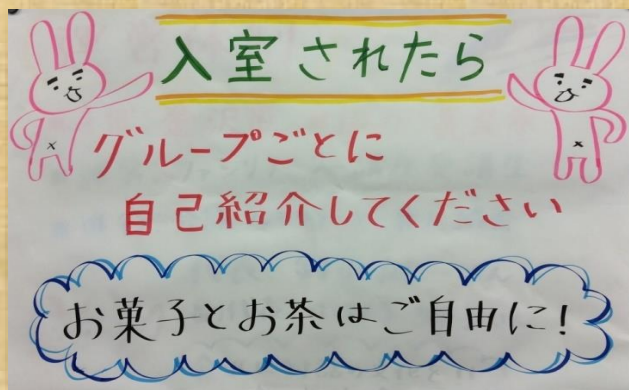 入室されたら
グループごとに
自己紹介してください
お菓子とお茶はご自由に!